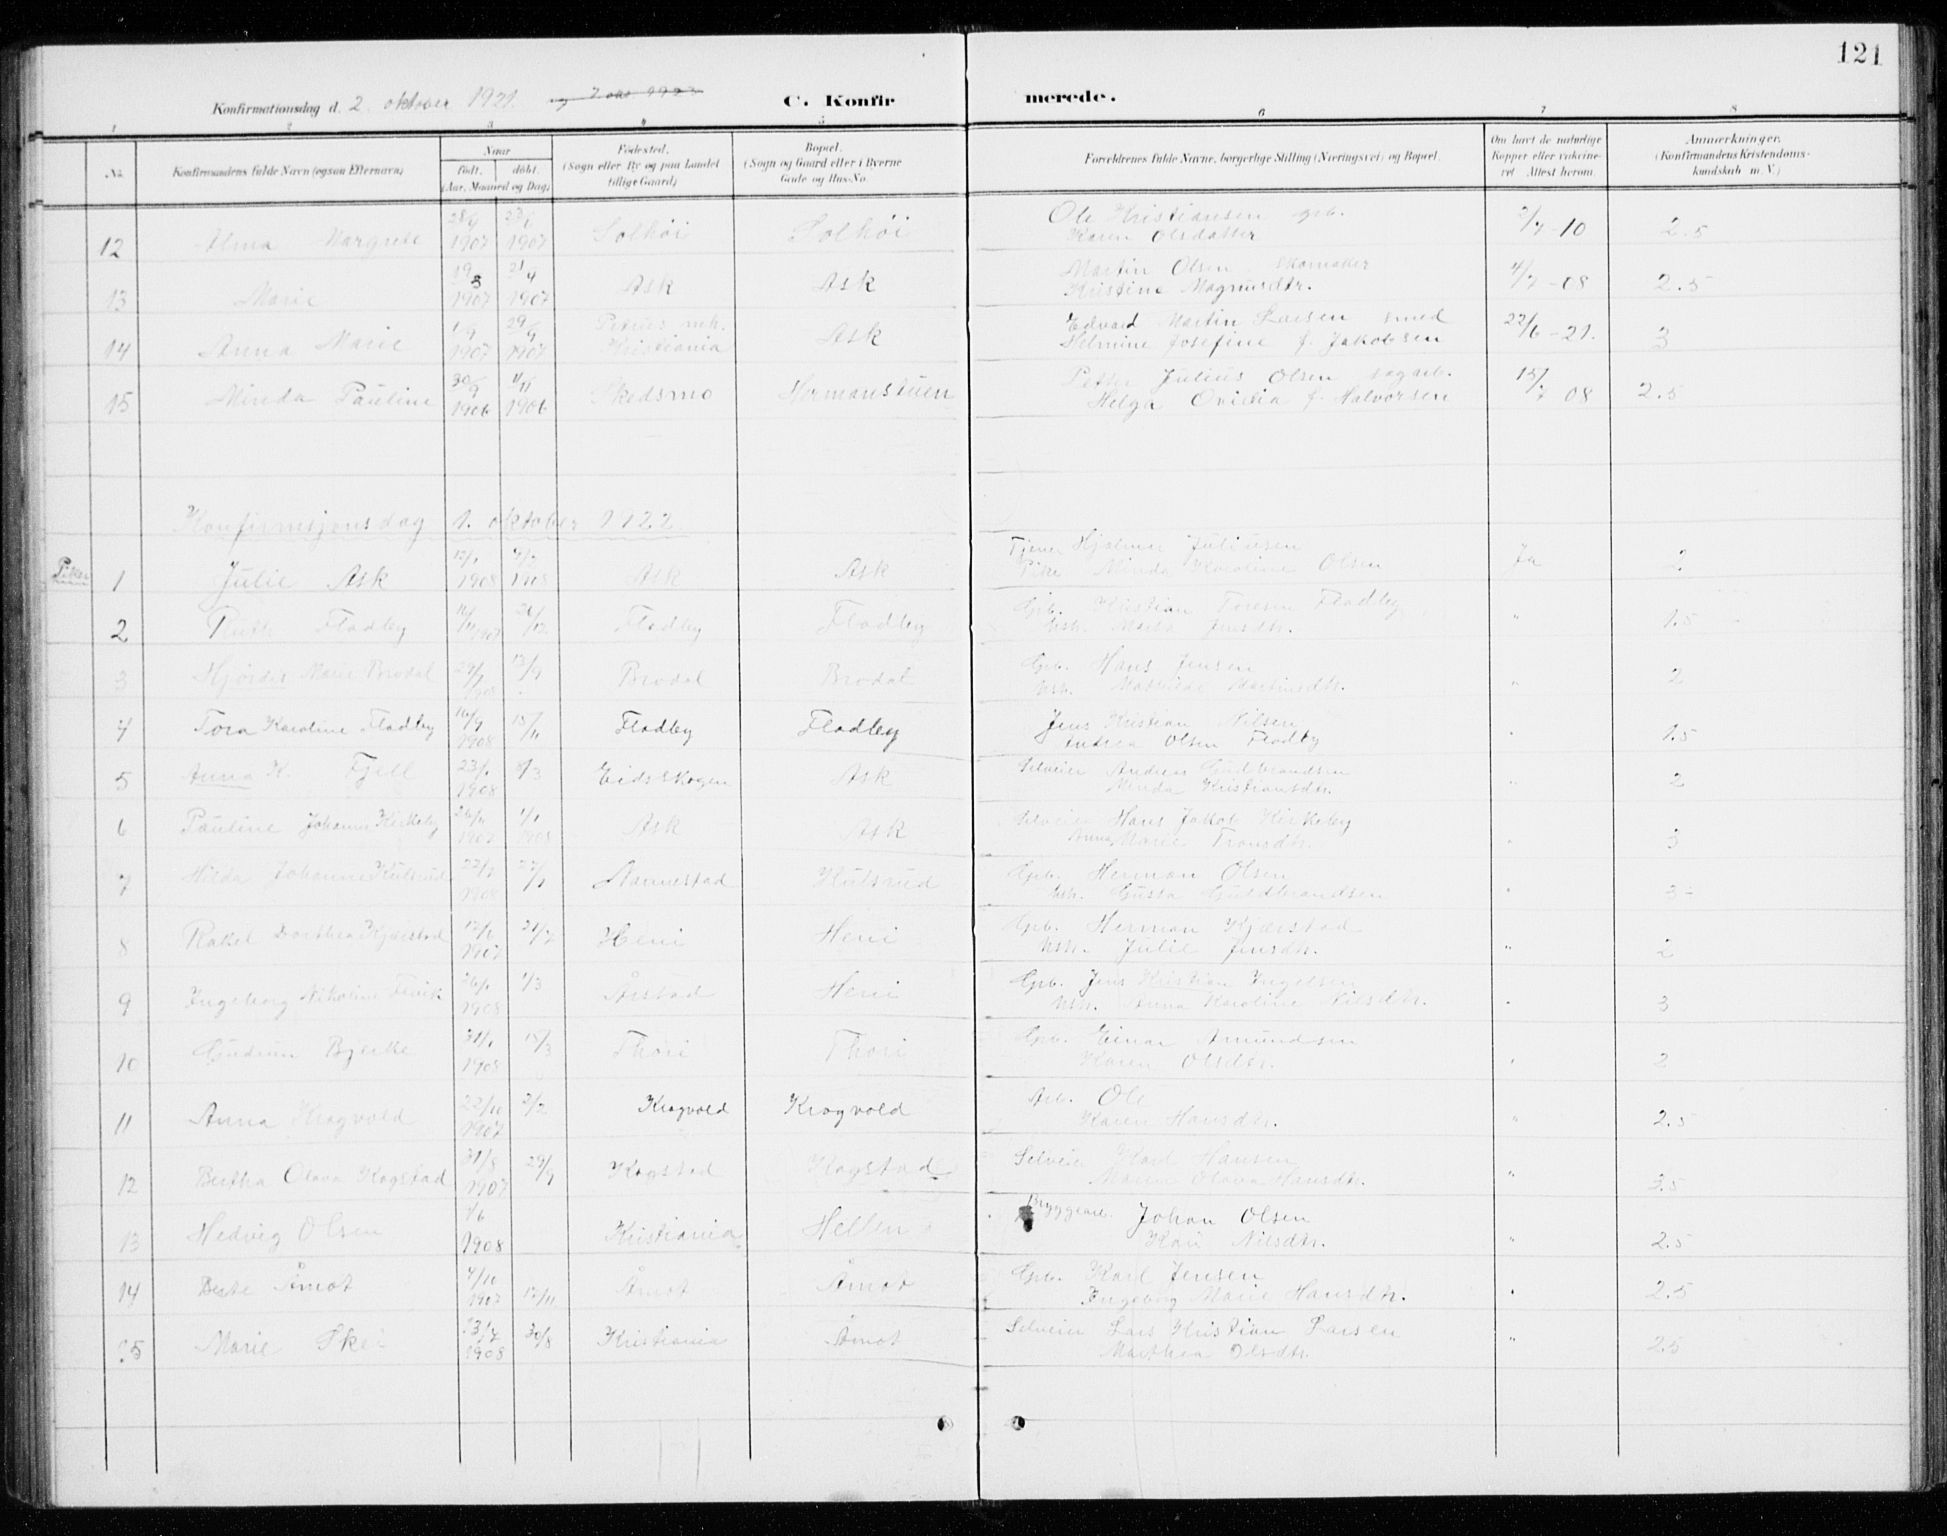 121
Konfirmationsdag d. 2. oktober 1921. C. Konfirmerede.
1 2 3 4 5 6 7 8
No. Konfirmandens fulde Navn (ogsaa Efternavn) Naar født. døbt. (Aar, Maaned og Dag) Fødested. (Sogn eller By og paa Landet tillige Gaard) Bopæl. (Sogn og Gaard eller i Byerne Gade og Hus-No. Forældrenes fulde Navne, borgerlige Stilling (Næringsvei) og Bopæl. Om havt de naturlige Kopper eller vakcineret. Attest herom. Anmærkninger. (Konfirmandens Kristendomskundskab m. V.)
12 Alma Margrete 28/9 1907 1907 Solhöi Solhöi Ole Kristiansen grb. 2/7-10 2.5
Karen Olsdatter
13 Marie 19/3 1907 21/4 1907 Ask Ask Martin Olsen skomaker 4/7-08 2.5
Kristine Magnusdtr.
14 Anna Marie 1/9 1907 29/9 1907 Petrus mh. Kristiania Ask Edvard Martin Larsen smed 22/6-21. 3
Helmine Josefine f. Jakobsen
15 Minda Pauline 30/9 1906 4/11 1906 Skedsmo Hermanstuen Petter Julius Olsen sagarb. 15/7 08 2.5
Helga Ovidia f. Halvorsen
Konfirmsjonsdag 1. oktober 1922
Piker 1 Julie Ask 12/1 1908 1908 Ask Ask Tjener Hjalmar Juliusen Ja 2
Pike Minda Karoline Olsen
2 Ruth Fladby 11/11 1907 26/12 Fladby Fladby Grb. Kristian Toresen Fladby " 1.5
Hstr. Marta Jensdtr.
3 Hjørdis Marie Brodal 29/7 1908 13/9 Brodal Brodal Grb. Hans Jensen " 2
Hstr. Mathilde Martinsdtr.
4 Tora Karoline Fladby 16/9 1908 15/11 Fladby Fladby Jens Kristian Nilsen " 1.5
Andrea Olsen Fladby
5 Anna K. Fjell 23/1 1908 8/3 Eidsskogen Ask Selveier Andreas Gulbrandsen " 2
Minda Kristiansdtr.
6 Pauline Johanne Kirkeby 26/11 1907 1/1 1908 Ask Ask Selveier Hans Jakob Kirkeby " 3
Anna Marie Tronsdtr.
7 Hilda Johanne Kulsrud 1908 Nannestad Kulsrud Grb. Herman Olsen " 3-
Hstr. Gusta Guldbrandsen
8 Rakel Dorthea Kjærstad 12/6 1907 21/7 Heni Heni Grb. Herman Kjærstad " 2
Hstr. Julie Jensdtr.
9 Ingeborg Nikoline 26/1 1908 1/3 Årstad Heni Grb. Jens Kristian Ingelsen " 3
Hstr. Anna Karoline Nilsdtr.
10 Gudrun Bjerke 31/1 1908 15/3 Thori Thori Grb. Einar Amundsen " 2
Karen Olsdtr.
11 Anna Kragvold 22/10 1907 2/2 Kragvold Kragvold Arb. Ole " 2.5
Karen Hansdtr.
12 Bertha Olava Kogstad 31/8 1907 29/9 Kogstad Kogstad Selveier Karl Hansen " 3.5
Maren Olava Hansdtr.
13 Hedvig Olsen 1/6 1908 Kristiania Hellen Bryggearb. Johan Olsen " 2.5
Kari Nilsdtr.
14 Berte Åmot 4/10 1907 17/11 Åmot Åmot Grb. Karl Jensen " 2.5
Ingeborg Marie Hansdtr.
15 Marie Skei 1908 30/8 Kristiania Åmot Selveier Lars Kristian Larsen " 2.5
Marthea Olsdtr.